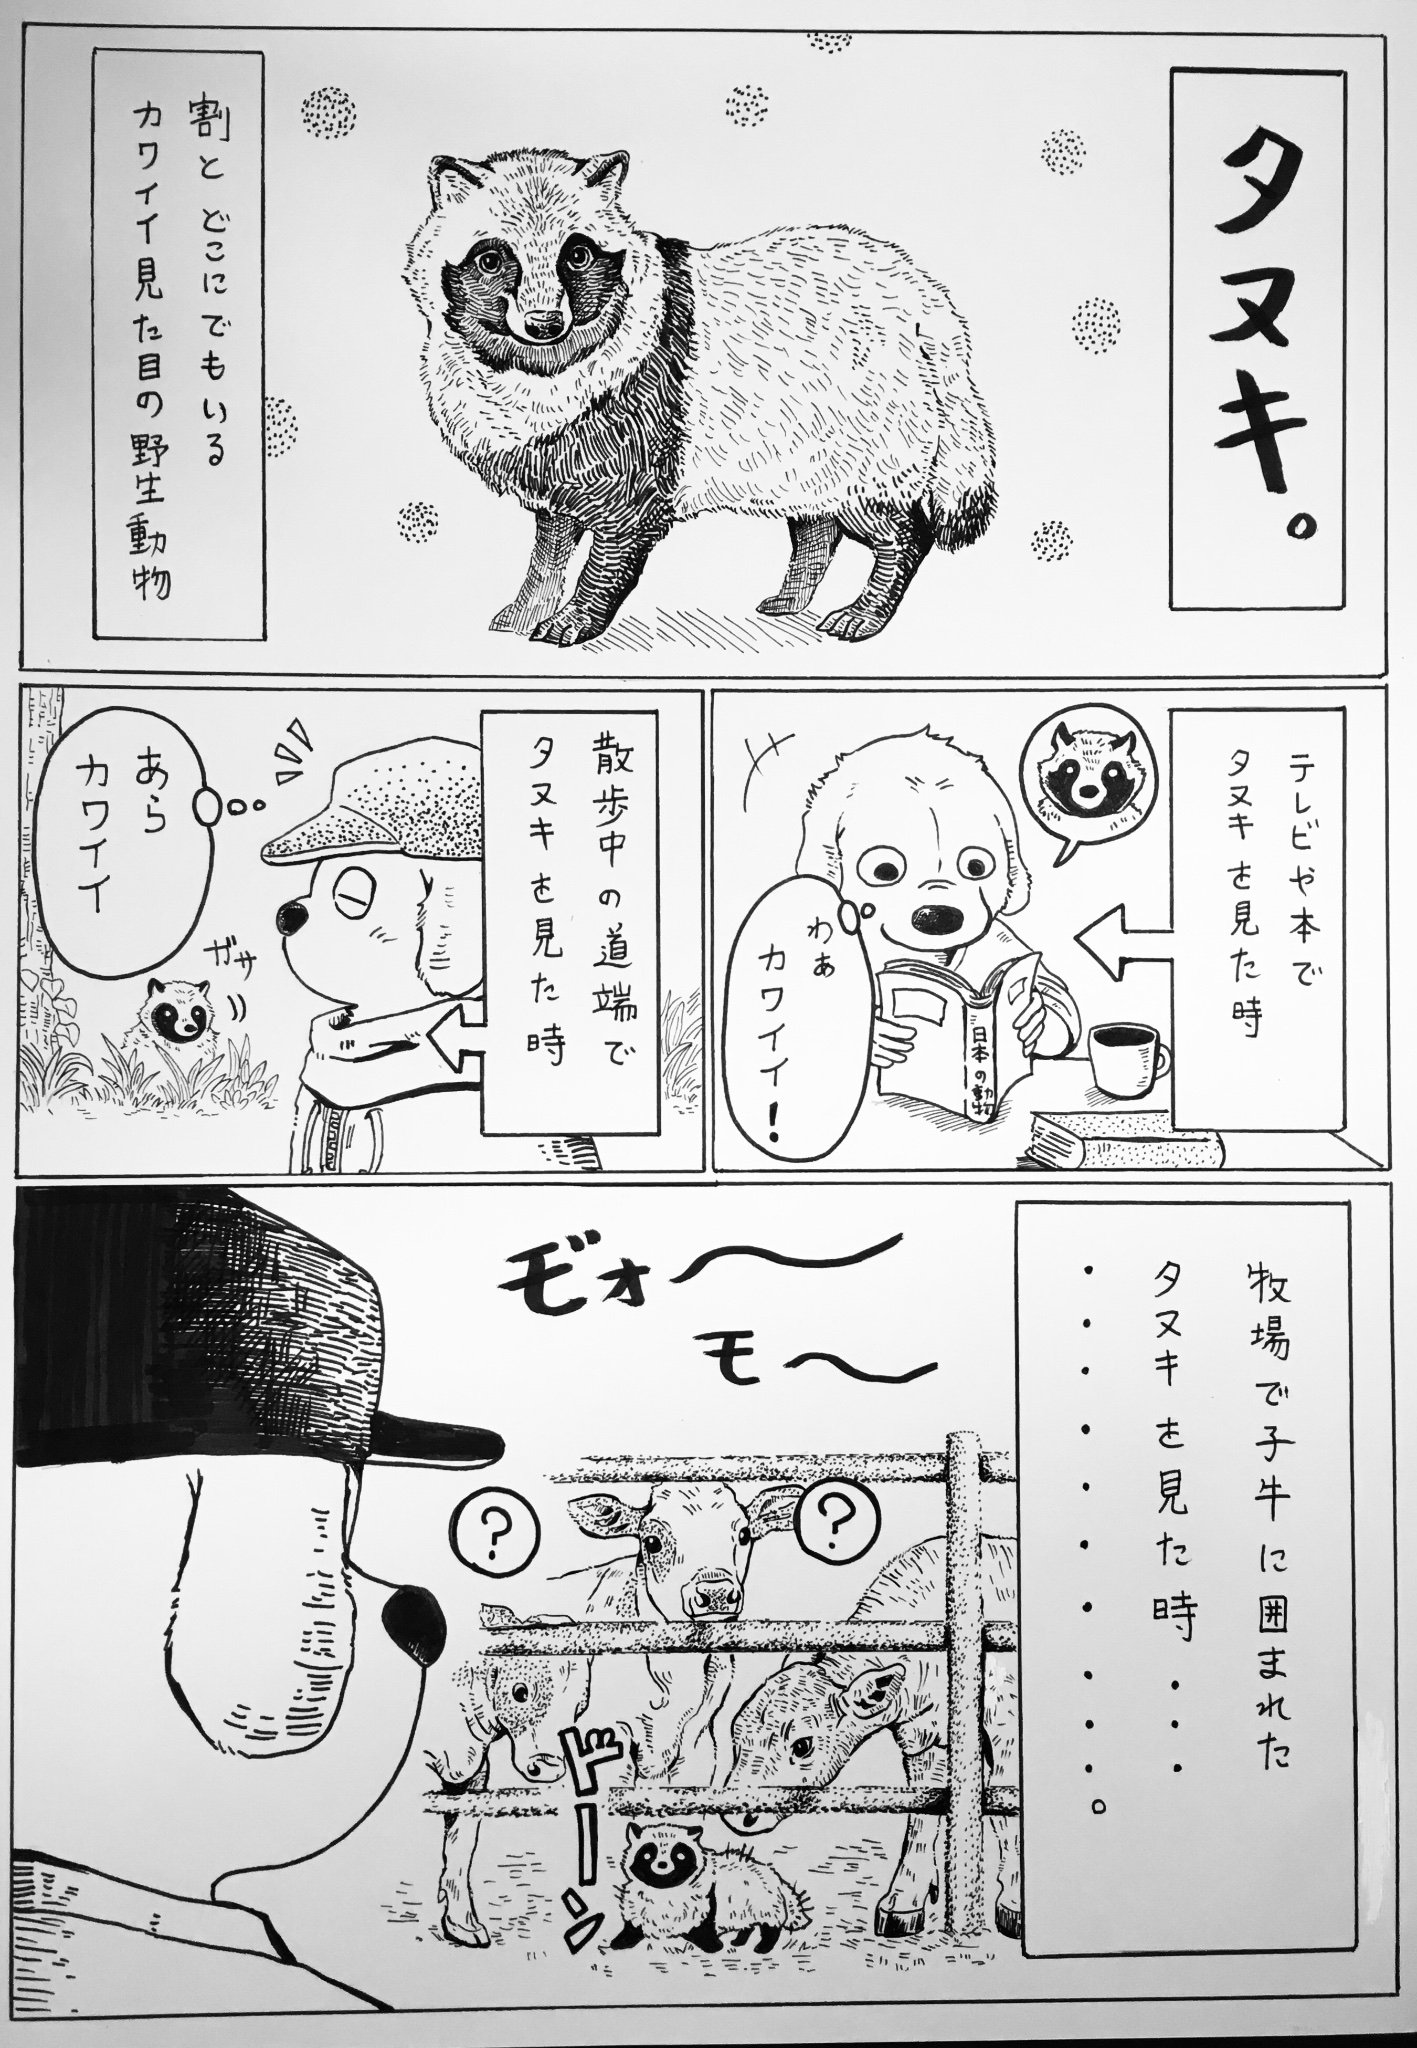 タヌキ。
割とどこにでもいる
カワイイ見た目の野生動物
テレビや本で
タヌキを見た時
わぁ
カワイイ!
日本の動物
散歩中の道端で
タヌキを見た時
あら
カワイイ
ガサ
牧場で子牛に囲まれた
タヌキを見た時・・・
・・・・・・・・・・。
モ゛ォ〜
モ〜
?
?
ドーン